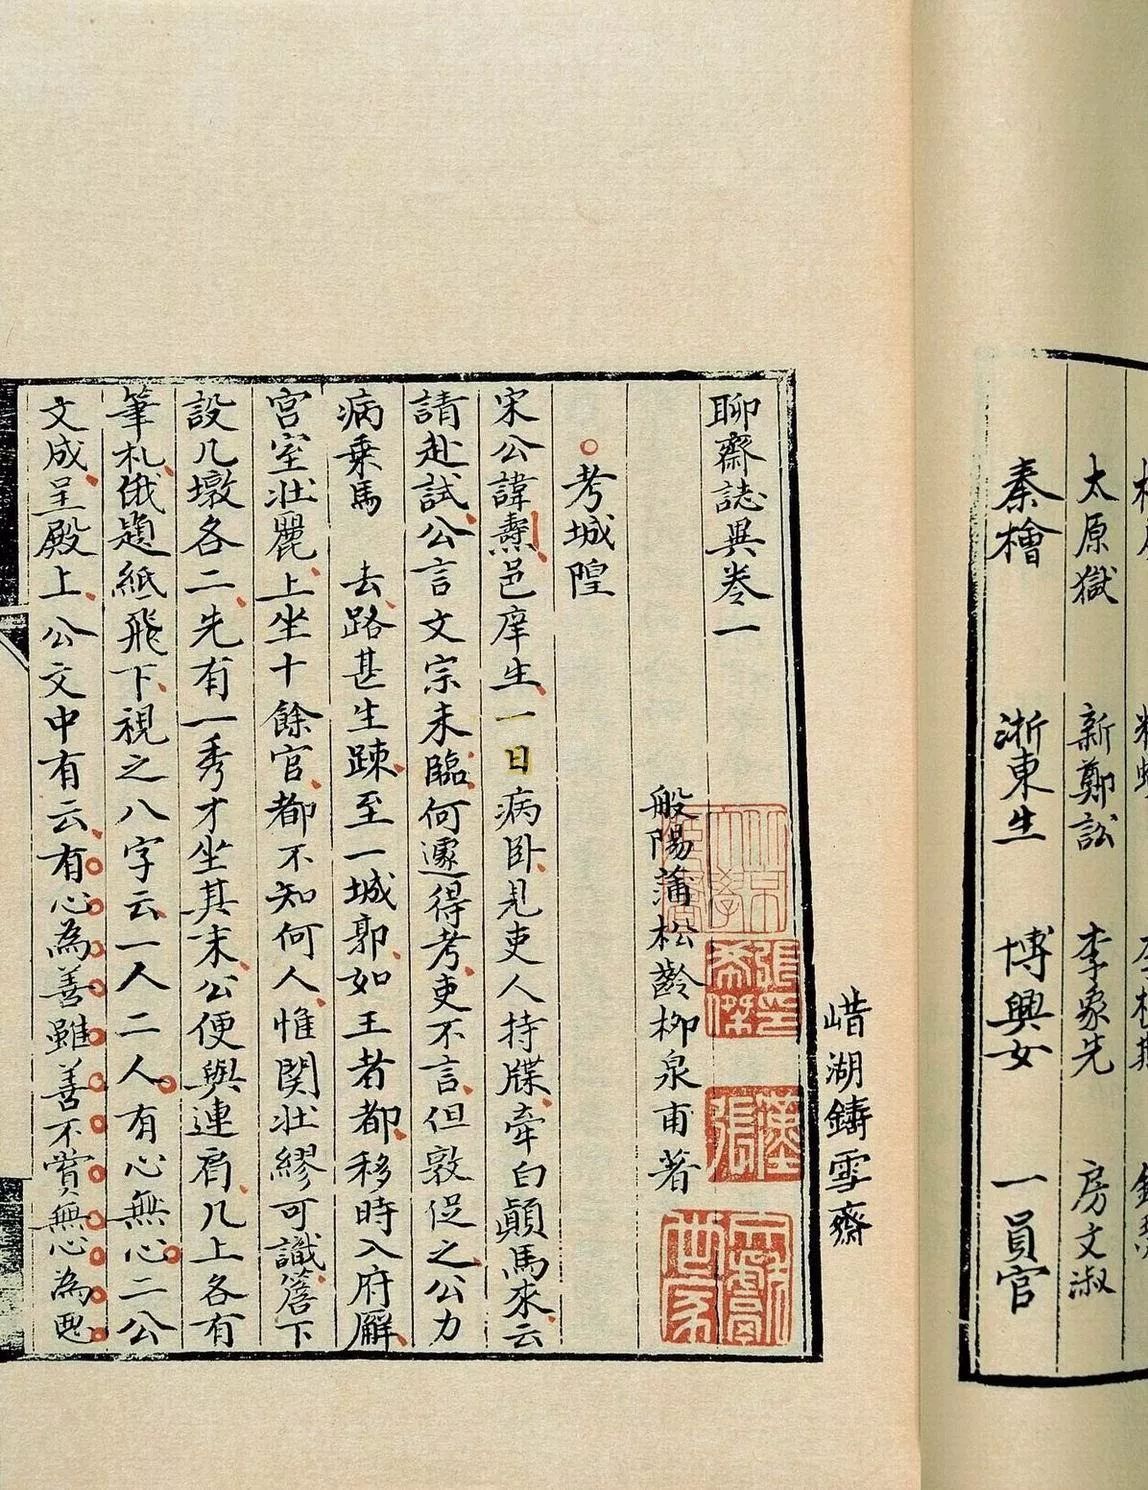 太原獄 新鄭訟 李象先 房文淑
秦檜 浙東生 博興女 一員官
湖鑄雪齋
聊齋誌異卷一
張印希傑
般陽蒲松齡柳泉甫著
考城隍
宋公諱燾邑庠生一日病卧見吏人持牒牽白顛馬來云
請赴試公言文宗未臨何遽得考吏不言但敦促之公力
病乗馬 去路甚生踈至一城郭如王者都移時入府廨
宮室壯麗上坐十餘官都不知何人惟関壯繆可識簷下
設几墩各二先有一秀才坐其末公便與連肩几上各有
筆札俄題紙飛下視之八字云一人二人有心無心二公
文成呈殿上公文中有云有心為善雖善不賞無心為惡